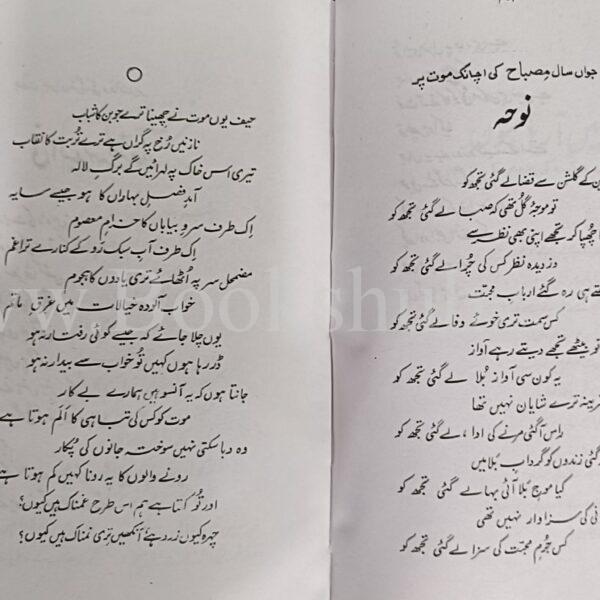 جواں سال مصباح کی اچانک موت پر
نوحہ
کے گلشن سے قضا لے گئی تجھ کو
تو موجۂ گُل تھی کہ صبا لے گئی تجھ کو
چھپا کر تجھے اپنی بھی نظر سے
دزدیدہ نظر کس کی چُرا لے گئی تجھ کو
ہی رہ گئے اربابِ محبت
کس سمت تری خوئے وفا لے گئی تجھ کو
بیٹھے تجھے دیتے رہے آواز
یہ کون سی آواز بُلا لے گئی تجھ کو
قرینہ ترے شایاں نہیں تھا
راس آ گئی مرنے کی ادا، لے گئی تجھ کو
گئی زندوں کو گردابِ بلا میں
کیا موجِ بُلا آئی بہا لے گئی تجھ کو
کی سزاوار نہیں تھی
کس جُرمِ محبت کی سزا لے گئی تجھ کو
حیف یوں موت نے چھینا ترے جوبن کا شباب
نازنیں رُخ پہ گراں ہے ترے تُربت کا نقاب
تیری اس خاک پہ لہرائیں گے برگِ لالہ
آمدِ فصلِ بہاراں کا ہو جیسے سایہ
اِک طرف سروِ بیاباں کا خرامِ معصوم
اِک طرف آبِ سبک رَو کے کنارے ترا غم
مضمحل سر پہ اُٹھائے تری یادوں کا ہجوم
خواب آلودہ خیالات میں غرقِ ماتم
یوں چلا جائے کہ جیسے کوئی رفتار نہ ہو
ڈر رہا ہوں کہیں تُو خواب سے بیدار نہ ہو
جانتا ہوں کہ یہ آنسو ہیں ہمارے بے کار
موت کو کس کی تباہی کا اَلم ہوتا ہے
وہ دبا سکتی نہیں سوختہ جانوں کی پُکار
رونے والوں کا یہ رونا کہیں کم ہوتا ہے
اور تُو کتا ہے ہم اس طرح غمناک ہیں کیوں؟
چہرہ کیوں زرد ہے آنکھیں تری نمناک ہیں کیوں؟